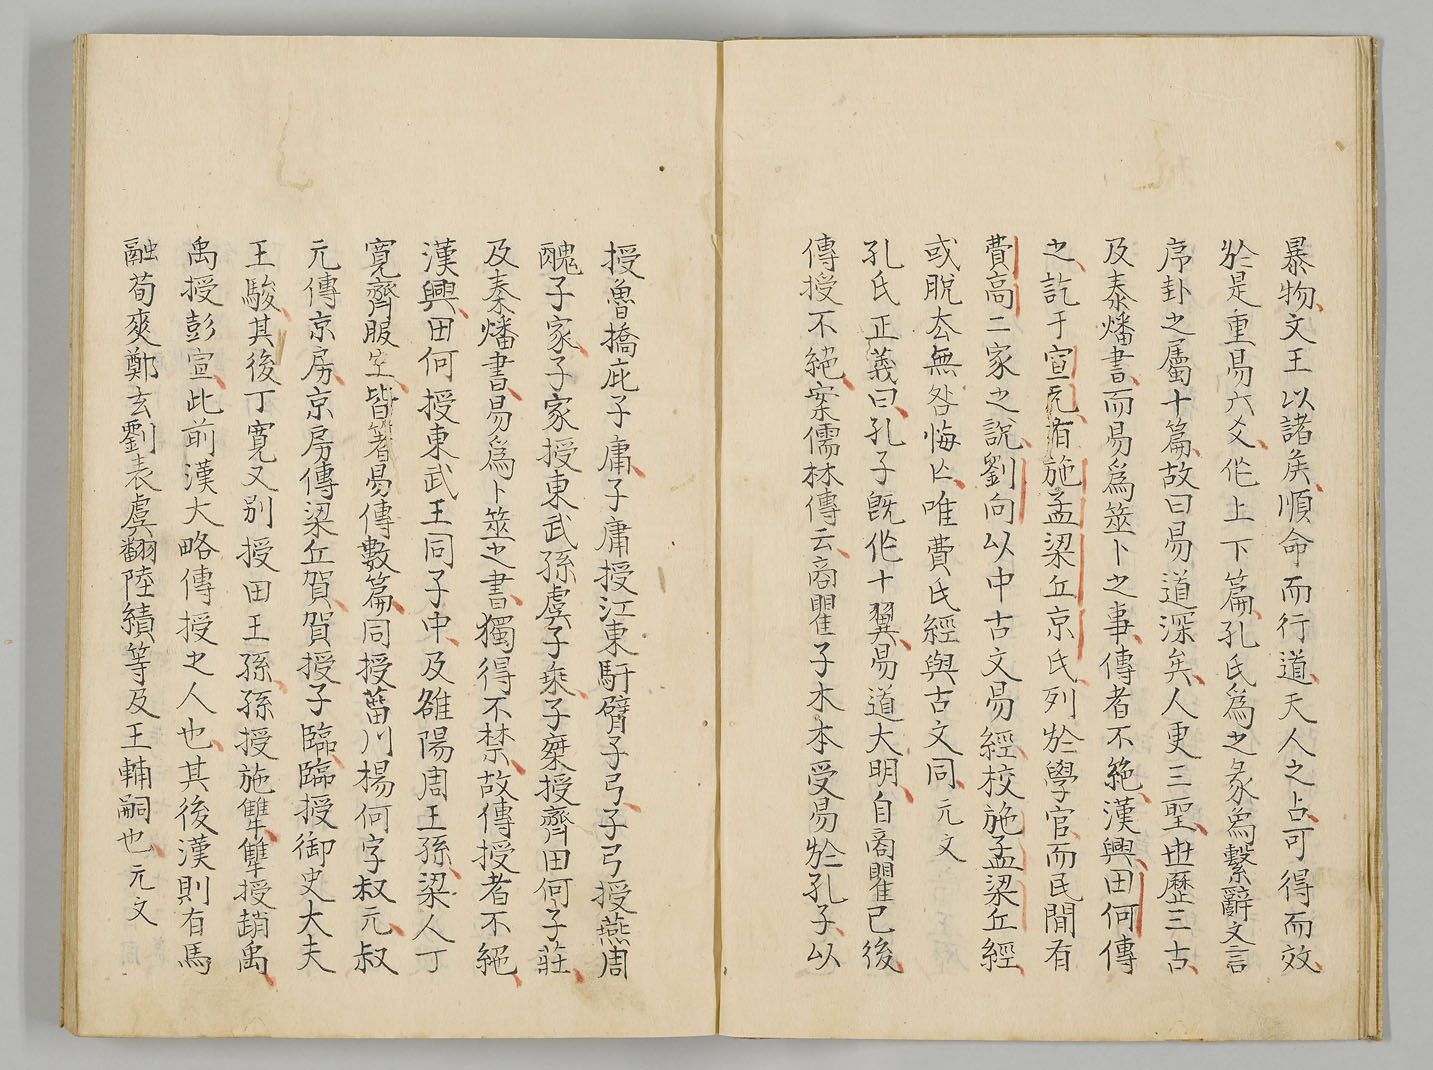 暴物文王以諸矦順命而行道天人之占可得而效
於是重易六爻作上下篇孔氏爲之彖象繫辭文言
序卦之屬十篇故曰易道深矣人更三聖世歷三古
及秦燔書而易爲筮卜之事傳者不絕漢興田何傳
之訖于宣元有施孟梁丘京氏列於學官而民間有
費高二家之說劉向以中古文易經校施孟梁丘經
或脫去無咎悔亡唯費氏經與古文同元文
孔氏正義曰孔子旣作十翼易道大明自商瞿已後
傳授不絕案儒林傳云商瞿子木本受易於孔子以
授魯橋庇子庸子庸授江東馯臂子弓子弓授燕周
醜子家子家授東武孫虞子乘子乗授齊田何子莊
及秦燔書易爲卜筮之書獨得不禁故傳授者不絕
漢興田何授東武王同子中及雒陽周王孫梁人丁
寬齊服生皆著易傳數篇同授菑川楊何字叔元叔
元傳京房京房傳梁丘賀賀授子臨臨授御史大夫
王駿其後丁寬又别授田王孫孫授施讐讐授趙禹
禹授彭宣此前漢大略傳授之人也其後漢則有馬
融荀爽鄭玄劉表虞翻陸績等及王輔嗣也元文